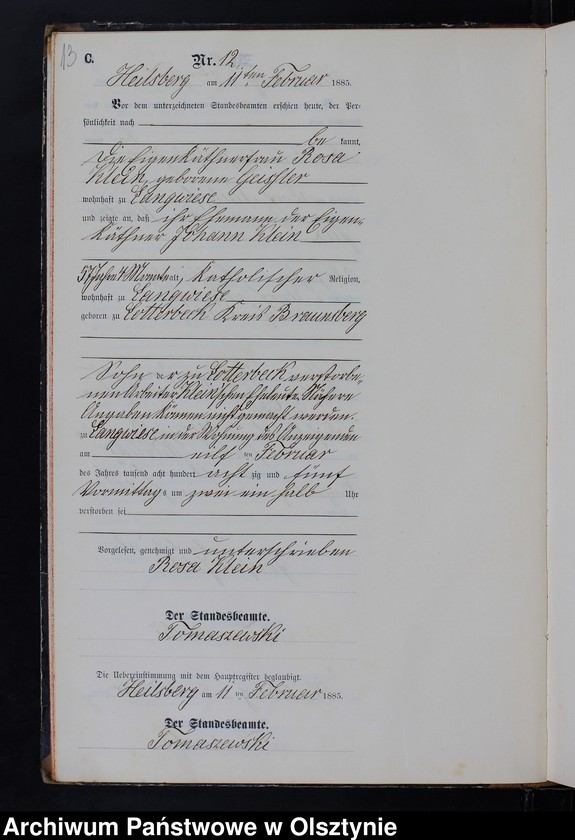 13 C. Nr. 12.
Heilsberg am 11ten Februar 1885.
Vor dem unterzeichneten Standesbeamten erschien heute, der Per-
sönlichkeit nach
be kannt,
Die Eigenkäthnerfrau Rosa
Klein, geborene Geißler
wohnhaft zu Langwiese
und zeigte an, daß ihr Ehemann, der Eigen-
käthner Johann Klein
57 Jahre 4 Monate alt, katholischer Religion,
wohnhaft zu Langwiese
geboren zu Lotterbach Kreis Braunsberg
Sohn der zu Lotterbach verstorbe-
nen Arbeiter Klein'schen Eheleute. Nähere
Angaben können nicht gemacht werden.
zu Langwiese in der Wohnung des Anzeigenden
am eilf ten Februar
des Jahres tausend acht hundert acht zig und fünf
Vormittags um zwei ein halb Uhr
verstorben sei
Vorgelesen, genehmigt und unterschrieben
Rosa Klein
Der Standesbeamte.
Tomaszewski
Die Uebereinstimmung mit dem Hauptregister beglaubigt.
Heilsberg am 11 ten Februar 1885.
Der Standesbeamte.
Tomaszewski
Archiwum Państwowe w Olsztynie